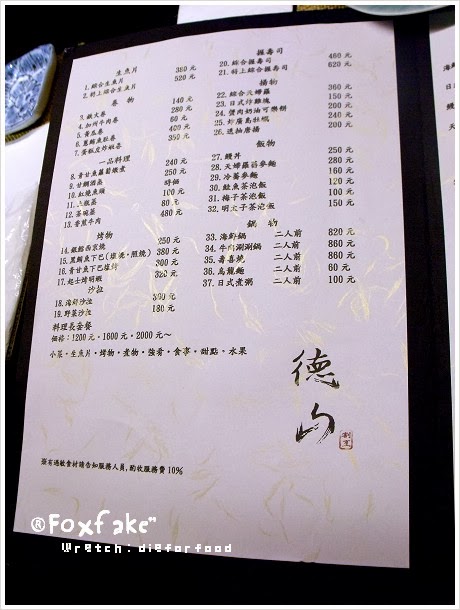 生魚片
1. 綜合生魚片 360 元
2. 特上綜合生魚片 520 元
卷 物
3. 鐵火卷 140 元
4. 加州牛肉卷 280 元
5. 黃瓜卷 60 元
6. 黑鮪魚肚卷 400 元
7. 蛋糕皮炸蝦卷 350 元
一品料理
8. 青甘魚蘿蔔煮 240 元
9. 甘鯛酒蒸 時價
10. 紅燒魚頭 100 元
11. 土瓶蒸 80 元
12. 茶碗蒸
13. 香煎牛肉 480 元
烤物
14. 銀鱈西京燒 250 元
15. 黑鮪魚下巴(鹽燒,照燒) 380 元
16. 青甘魚下巴鹽烤 300 元
17. 起士烤明蝦 320 元
沙拉
18. 海鮮沙拉
19. 野菜沙拉 180 元
料理長套餐
價格：1200元・1600元・2000元～
小菜・生魚片・烤物・煮物・強肴・食事・甜點、水果
握壽司
20. 綜合握壽司 460 元
21. 特上綜合握壽司 620 元
揚物
22. 綜合天婦羅 360 元
23. 日式炸雞塊 200 元
24. 蟹肉奶油可樂餅 240 元
25. 炸廣島牡蠣 350 元
26. 透抽唐揚 200 元
飯物
27. 鰻丼 250 元
28. 天婦羅蕎麥麵 280 元
29. 冷蕎麥麵 160 元
30. 鮭魚茶泡飯 120 元
31. 梅子茶泡飯 100 元
32. 明太子茶泡飯 150 元
鍋 物
33. 海鮮鍋 二人前 820 元
34. 牛肉涮涮鍋 二人前 860 元
35. 壽喜燒 二人前 860 元
36. 烏龍麵 二人前 60 元
37. 日式煮粥 二人前 100 元
德山
割烹
張有過敏食材請告知服務人員,酌收服務費10%
®Foxfake"
Wretch:dieforfood